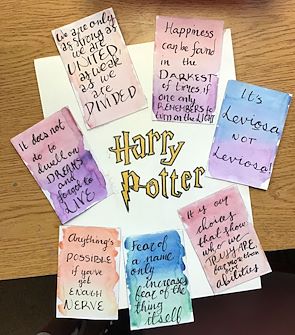 we are only
as strong as
we are
UNITED,
as weak
as we
are
DIVIDED
Happiness
can be found
in the
DARKEST
of times if
one only
REMEMBERS to
turn on the LIGHT
It's
Leviosa
NOT
Leviosa!
It does not
do to
dwell on
DREAMS
and
forget to
LIVE
Harry
Potter
It is our
choices
that show
who we
TRULY ARE,
far more than
our
abilities
Anything's
POSSIBLE
if you've
got
ENOUGH
NERVE
Fear of
a name
only increases
fear of the
thing
itself